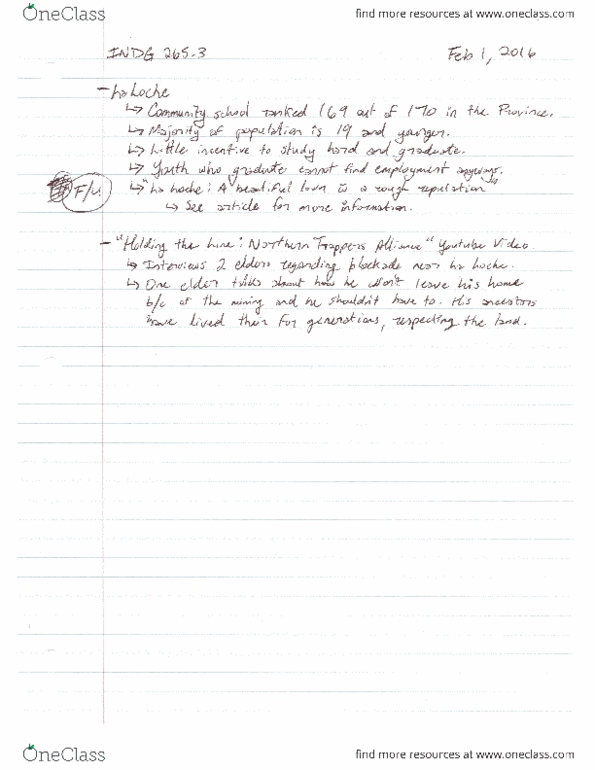 OneClass
find more resources at www.oneclass.com
INDG 265.3 Feb 1, 2016
- La Loche
↳ Community school ranked 169 out of 170 in the Province.
↳ Majority of population is 19 and younger.
↳ Little incentive to study hard and graduate.
↳ Youth who graduate cannot find employment anyways.
F/U ↳ "La Loche: A beautiful town w a rough reputation"
↳ See article for more information.
- "Holding the Line: Northern Trappers Alliance" Youtube Video.
↳ Interviews 2 elders regarding blockade near La Loche.
↳ One elder talks about how he won't leave his home
b/c of the mining and he shouldn't have to. His ancestors
have lived their for generations, respecting the land.
OneClass
find more resources at www.oneclass.com